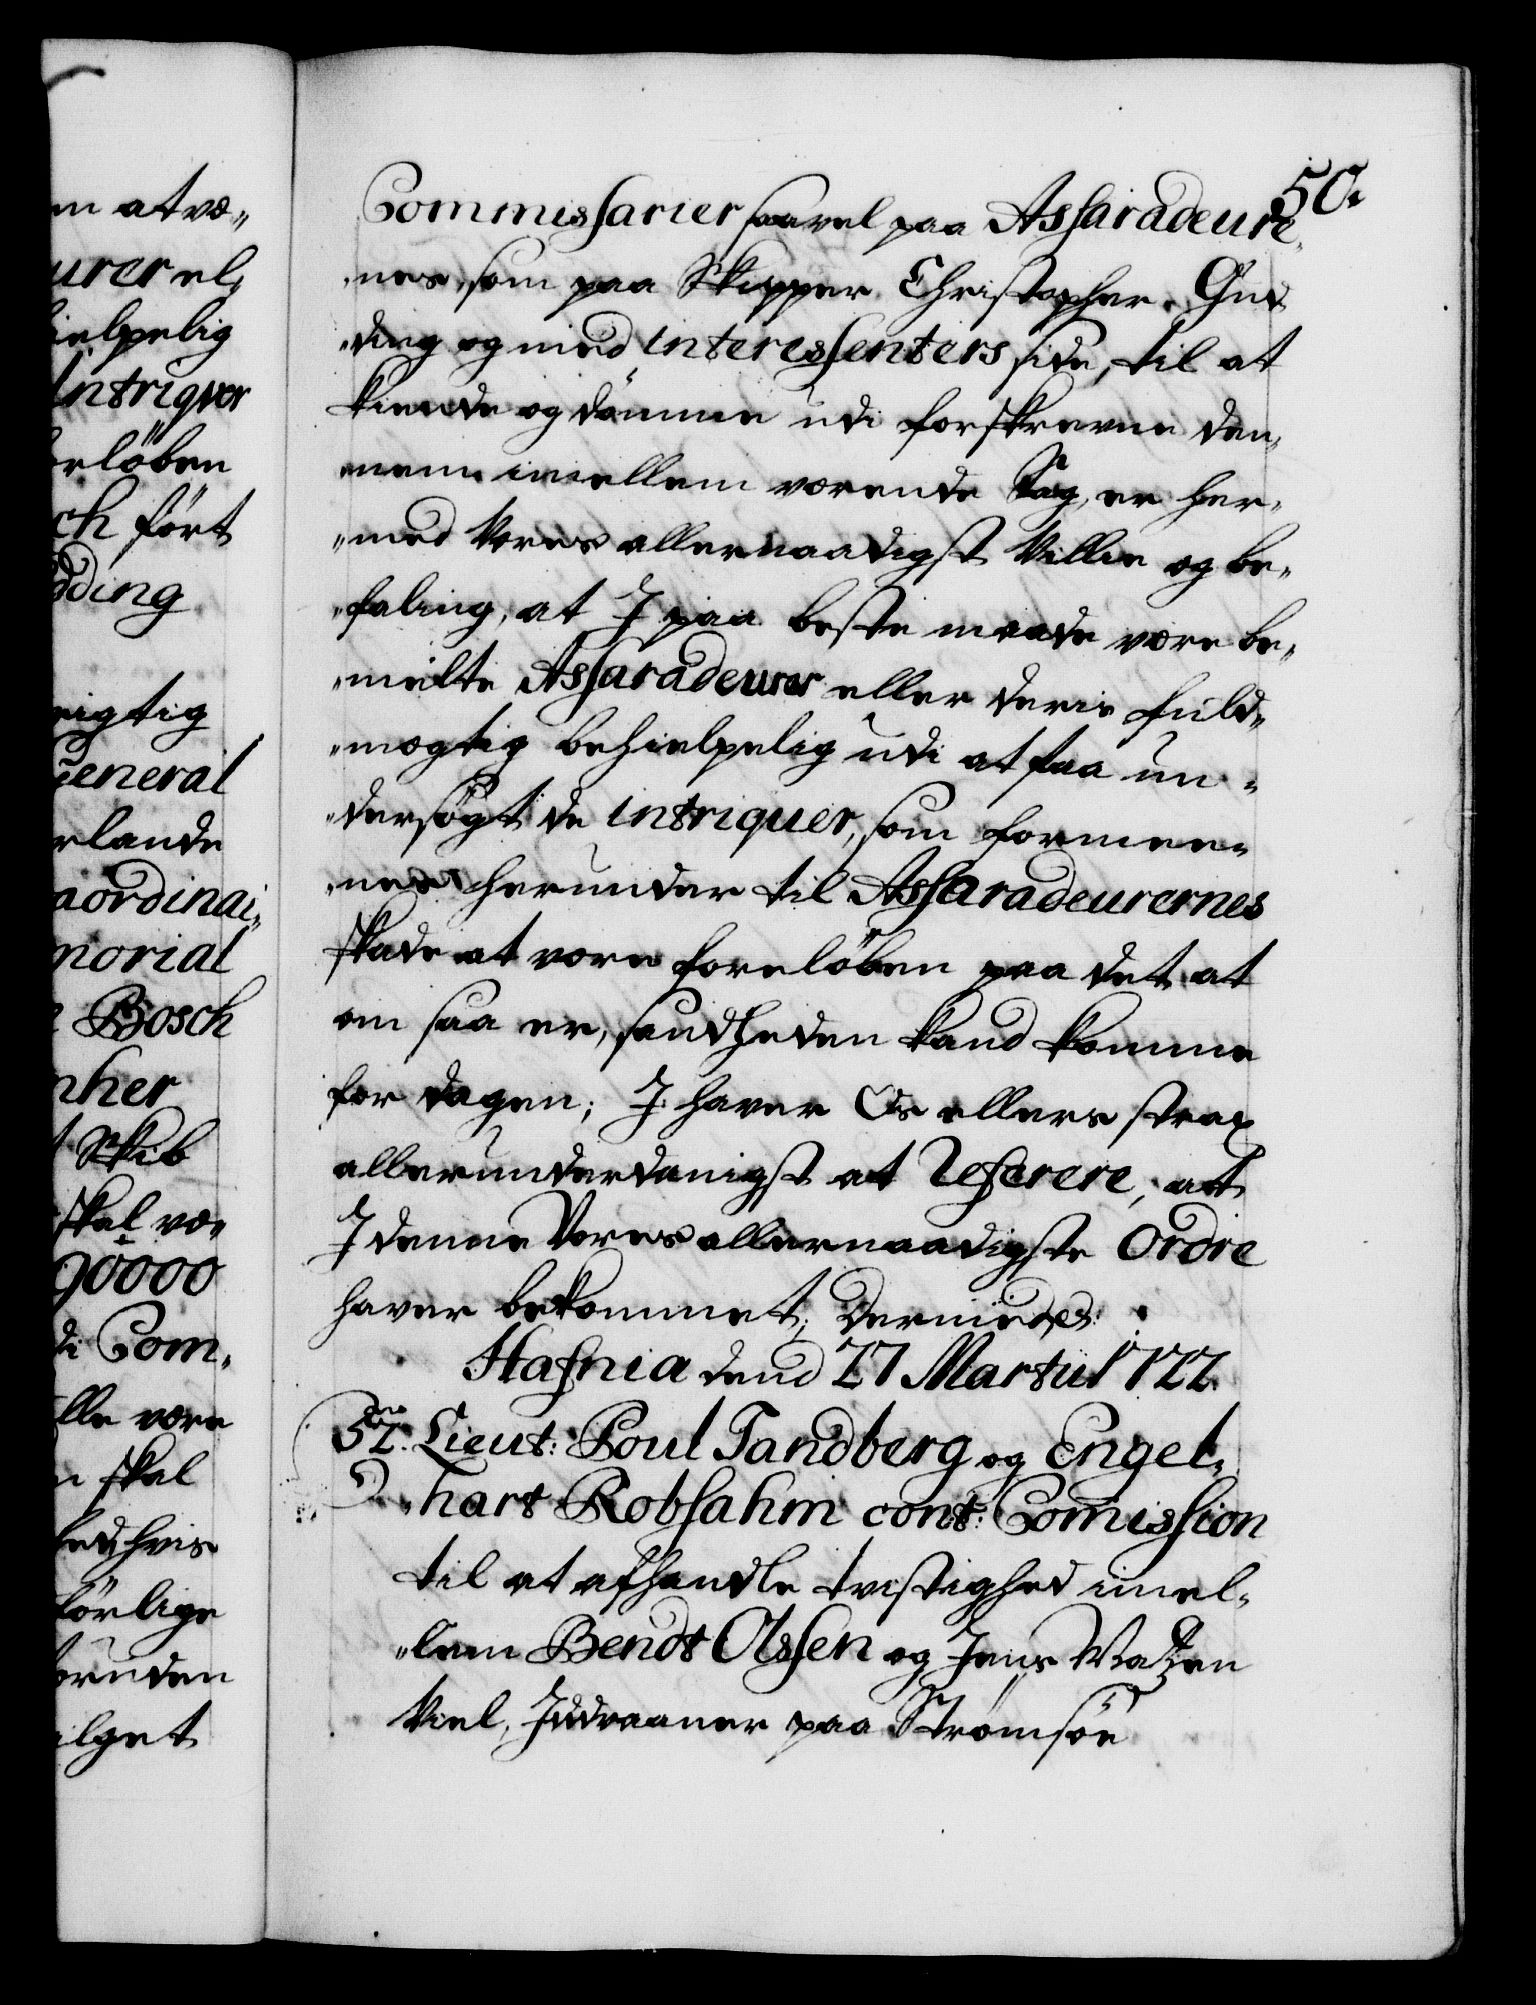 m at væ„
urer el„
ielpelig
Intriqver
erlöben
ch fört
dding
rigtig
General
rlande
aordinai„
morial
e Bosch
nher
t Skib
skal væ„
90000
di Com„
lle være
n skal
hed, hvis
förlige
foruden
ilget
50.
Commissarier saavel paa Assaradeure„
„nes, som paa Skipper Christopher Gud
„ding og med interessenters side, til at
kiende og dömme udi forskrevne den„
„nem imellem værende Sag, er her„
„med Vores allernaadigst Villie og be„
„faling, at I paa beste maade være be„
„melte Assaradeurer eller deris fuld„
„mægtig behielpelig udi at faa un„
„dersögt de intriquer, som formee„
„nes herunder til Assaradeurernes
skade at være forelöben paa det at
om saa er, sandheden kand komme
for dagen; I haver Os ellers strax
allerunderdanigst at Referere, at
I denne Vores allernaadigste Ordre
haver bekommet; Dermed etc:
Hafnia dend 27 Martii 1722.
52. Lieut: Poul Tandberg og Engel„
„hart Robsahm cont: Comission
til at afhandle tvistighed imel„
„lem Bendt Olssen og Jens Matzen
Kiel, Indvaaner paa Strömsöe